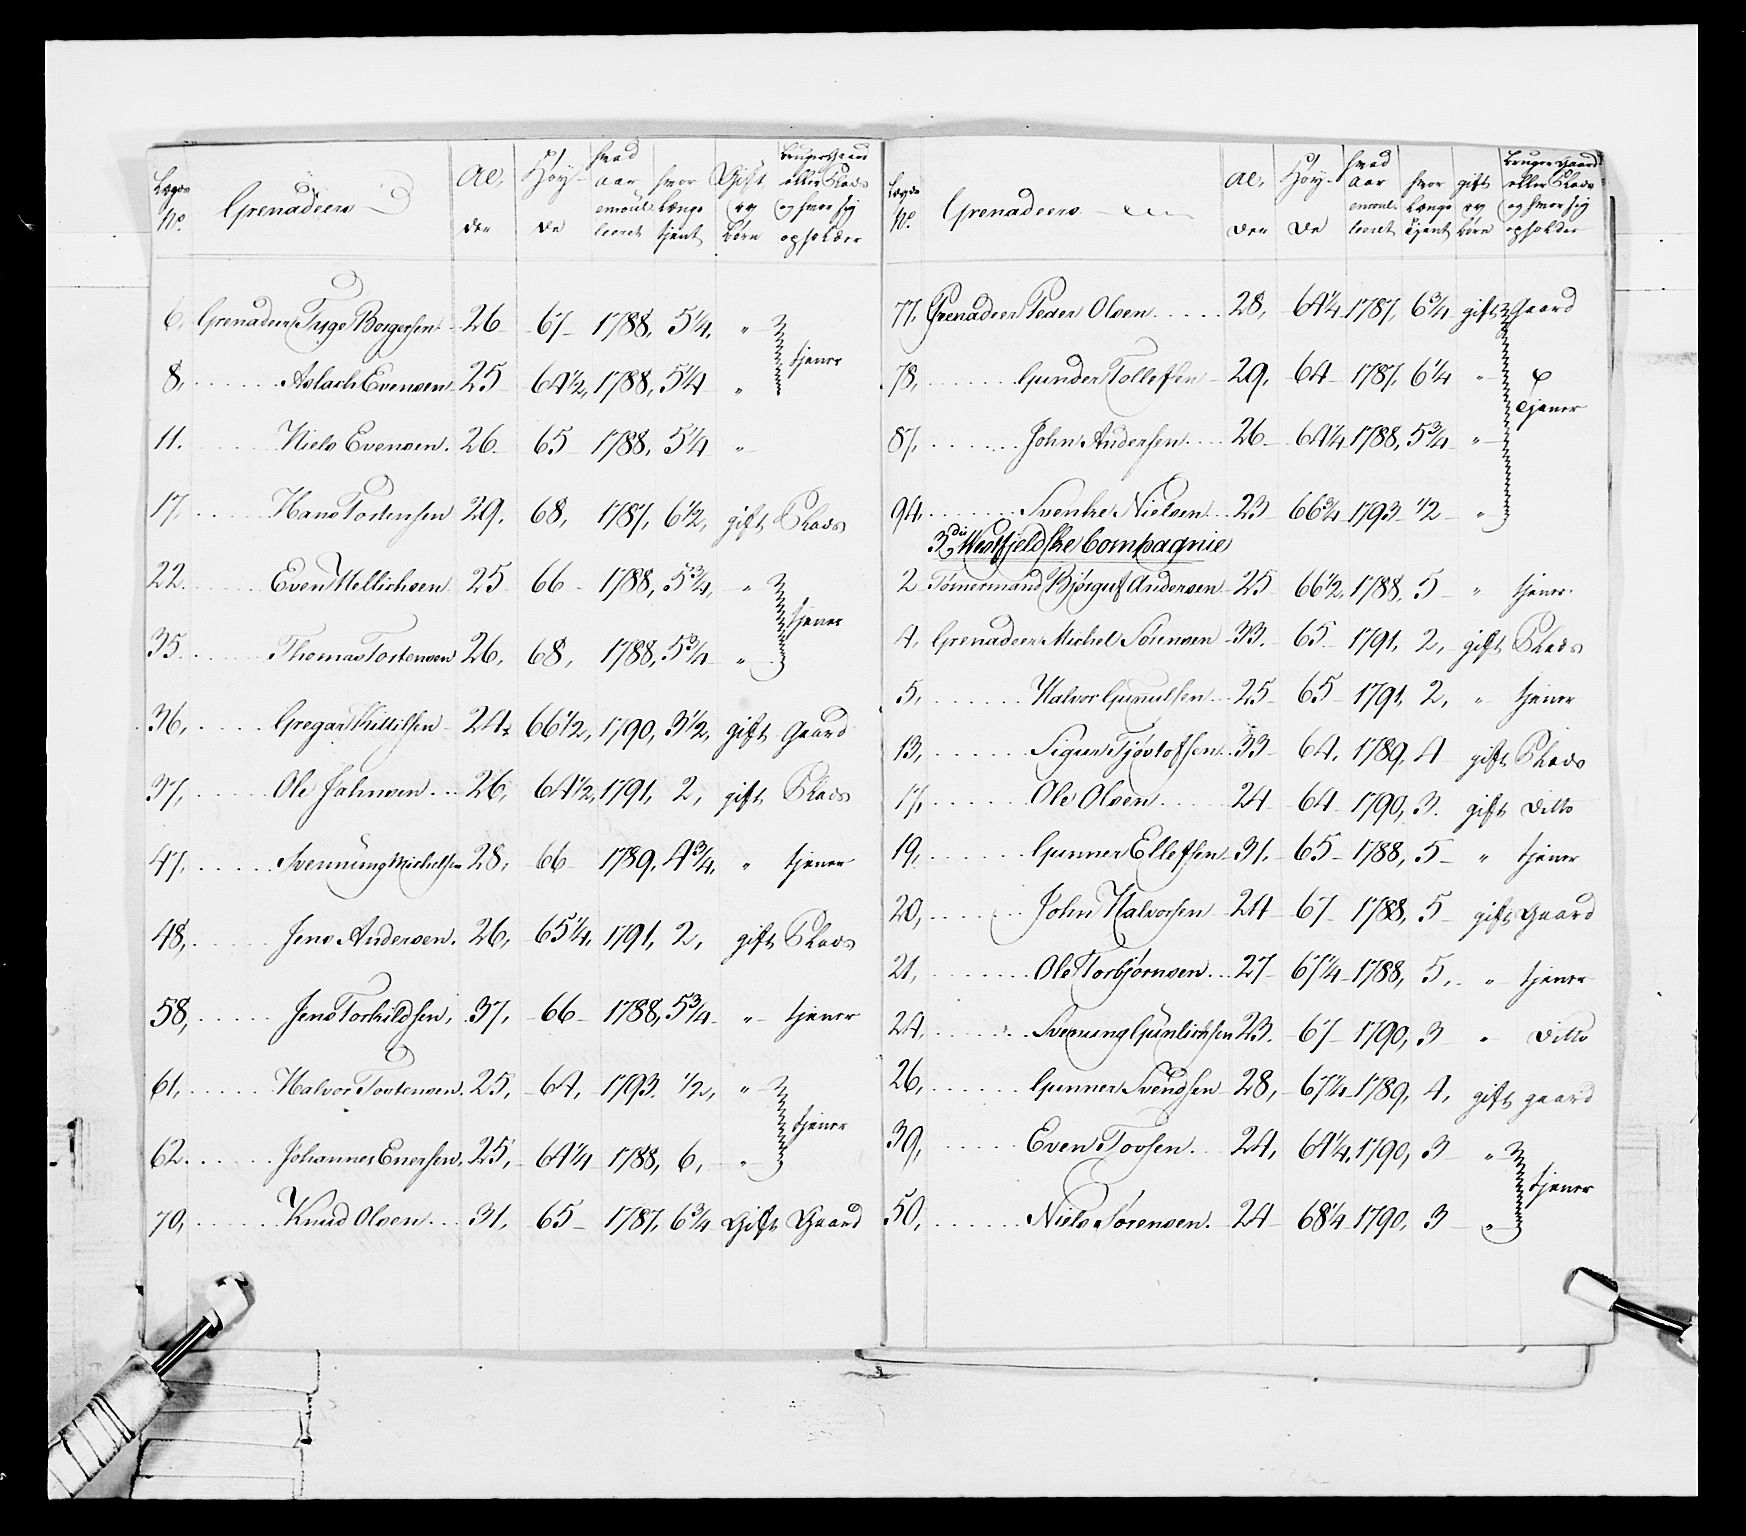 Lægds No. Grenadeers Al, der Høy- de hvad aar enroul- leeret hvor Længe tjent Gift og Børn bruger Gaard eller Plads og hvor sig opholder
6, Grenadeer Tyge Borgersen 26 67 1788, 5 1/4, "
tjener
8, Aslach Evensen 25 64 1/2, 1788, 5 1/4 "
11. Niels Evensen. 26 65 1788, 5 1/4 "
17, Hans Tostensen 29, 68, 1787, 6 1/2, gift Plads
22. Even Mellichsen 25 66 1788, 5 3/4, "
tjener
35. Thomas Tostensen 26, 68, 1788, 5 3/4 "
36, Gregar Kittilsen 24, 66 1/2, 1790, 3 1/2, gift Gaard
37, Ole Jahnsen 26, 64 1/2, 1791, 2, gift Plads
47, Svennung Michelsen 28, 66 1789, 4 3/4, " tjener
48, Jens Andersen. 26, 65 1/4, 1791, 2, gift Plads
58, Jens Torkildsen, 37, 66 1788, 5 3/4 " tjener
61, Halvor Tostensen. 25, 64, 1793. 1/2, "
tjener
62. Johannes Enersen, 25, 64 1/4 1788, 6, "
70, Knud Olsen 31, 65 1787, 6 3/4 Gift Gaard
Lægds No. Grenadeers Al, der Høy- de hvad aar enroul- leeret hvor Længe tjent gift og børn bruger Gaard eller Plads og hvor sig opholder
77, Grenadeer Peder Olsen 28, 64 1/4 1787, 6 3/4 gift Gaard
78, Gunder Tollefsen 29, 64 1787, 6 1/4 "
tjener
87, John Andersen 26 64 1/4 1788, 5 3/4 "
94, Svenke Nielsen 23 66 3/4 1793 1/2 "
3die Westfjeldske Compagnie
2 Tømermand Bjørguf Andersen 25 66 1/2, 1788, 5 " tjener.
4, Grenadeer Michel Sørensen 33. 65 1791, 2, gift Plads
5, Halvor Gunnulsen 25 65 1791, 2, " tjener
13, Sigur Tjøstofsen 33 64, 1789, 4 gift Plads
17, Ole Olsen 24 64 1790, 3. gift ditto
19, Gunner Ellefsen 31. 65 1788, 5 " tjener
20, John Halvorsen 24 67 1788, 5 gift Gaard
21, Ole Torbjørnsen 27 67 1/4 1788, 5, " tjener
24, Svenung Gunlichsen 23. 67 1790, 3 " ditto
26, Gunner Svendsen 28, 67 1/4 1789, 4, gift gaard
39, Even Tovsen. 24, 64 1/4, 1790, 3 "
tjener
50, Niels Sørensen. 24 68 1/4 1790, 3 "